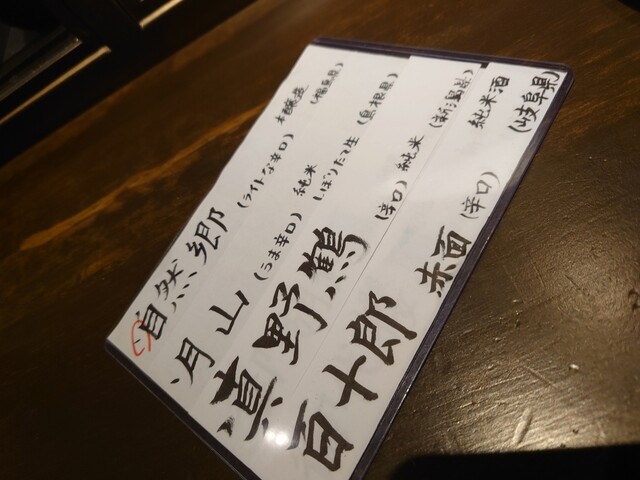 自然郷 (ライトな辛口) 本醸造 (福島県)
月山 (うま辛口) 純米 しぼりたて生 (島根県)
真野鶴 (辛口) 純米 (新潟県)
百十郎 赤面 (辛口) 純米酒 (岐阜県)